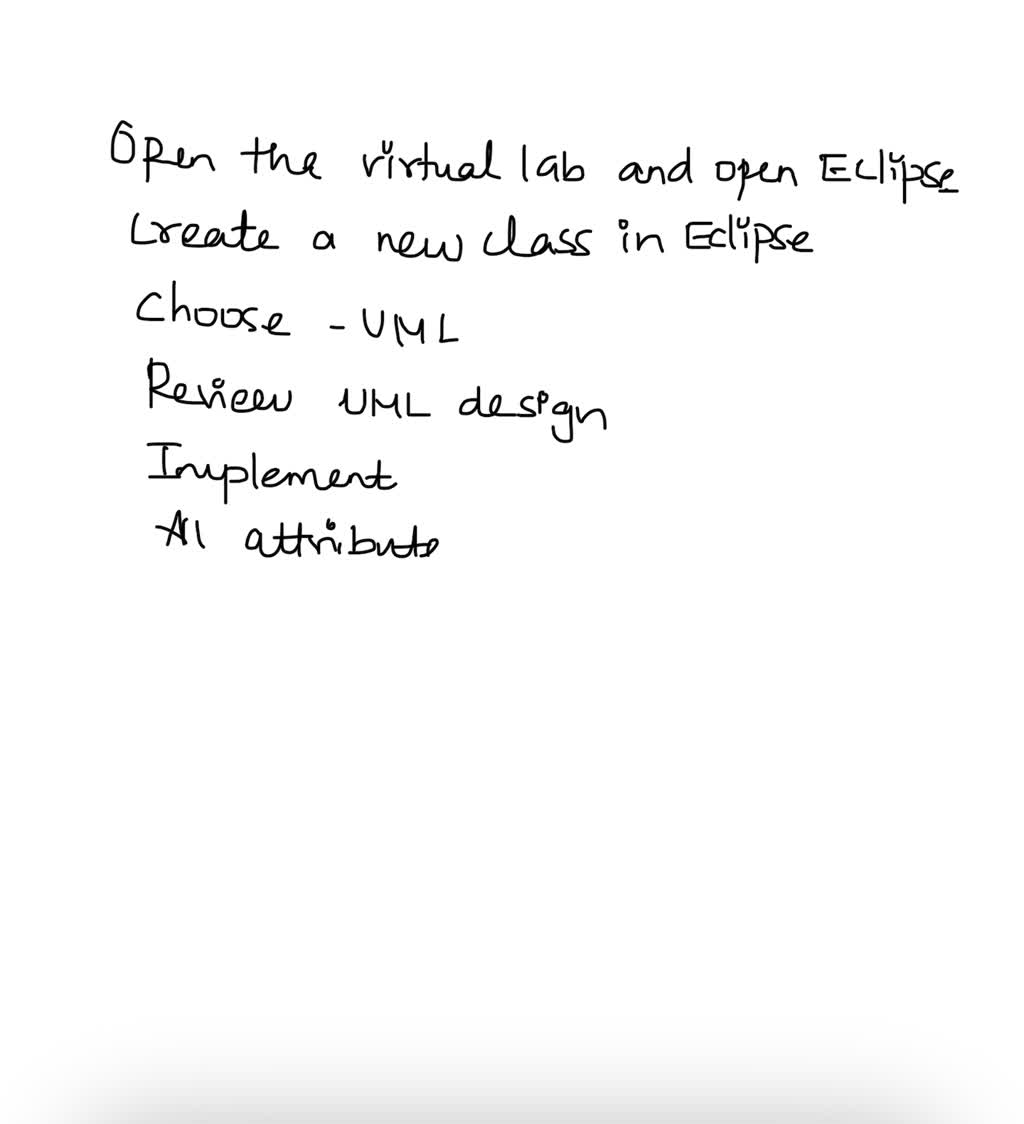 Open the virtual lab and open Eclipse
Create a new class in Eclipse
Choose - UML
Review UML design
Implement
Al attribute